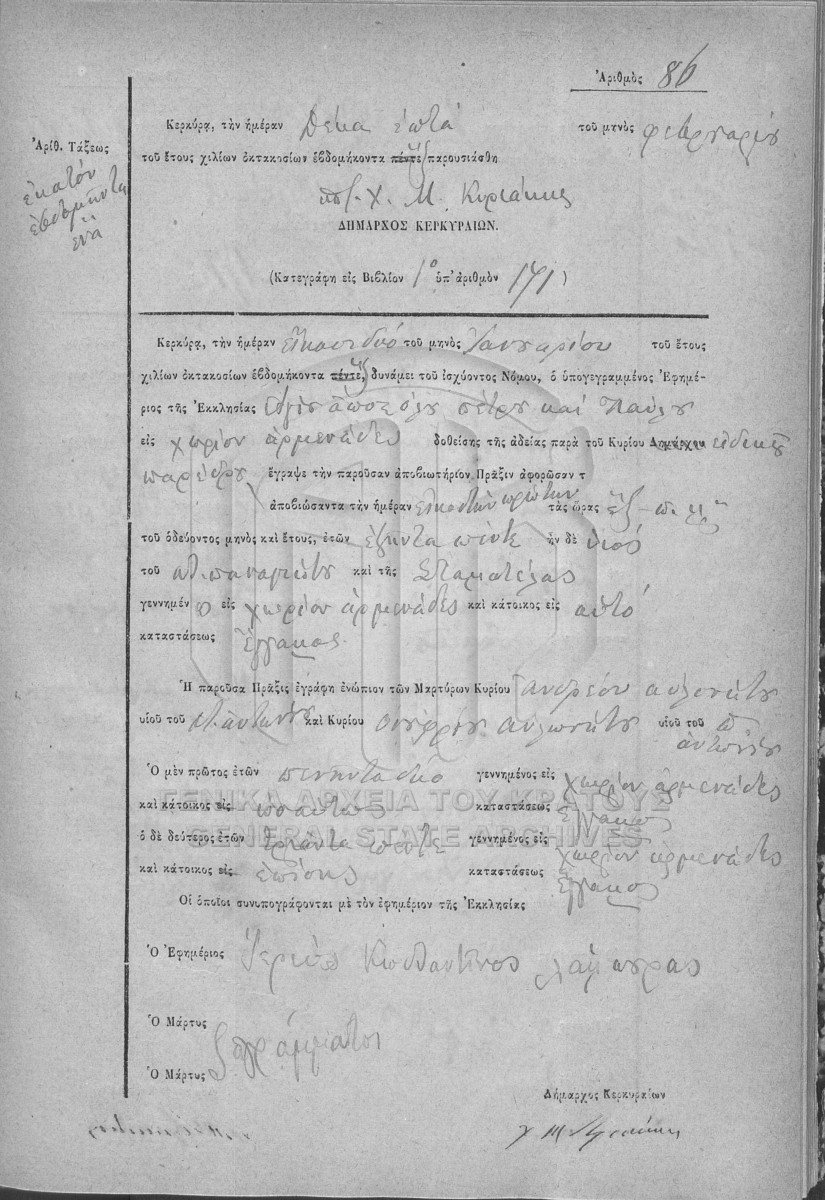 Ἀριθμὸς 86
Ἀρίθ. Τάξεως
ἑκατόν
ἑβδομῆντα
ἕνα
Κερκύρᾳ, τὴν ἡμέραν δέκα ἑπτά τοῦ μηνὸς φεβρουαρίου
τοῦ ἔτους χιλίων ὀκτακοσίων ἑβδομήκοντα πέντε ἕξ παρουσιάσθη
Χ. Μ. Κυριάκης
ΔΗΜΑΡΧΟΣ ΚΕΡΚΥΡΑΙΩΝ.
(Κατεγράφη εἰς Βιβλίον 1ο ὑπ' ἀριθμὸν 171)
Κερκύρᾳ, τὴν ἡμέραν εἴκοσι δυό τοῦ μηνὸς Ἰανουαρίου τοῦ ἔτους
χιλίων ὀκτακοσίων ἑβδομήκοντα πέντε, ἕξ δυνάμει τοῦ ἰσχύοντος Νόμου, ὁ ὑπογεγραμμένος Ἐφημέ-
ριος τῆς Ἐκκλησίας Ἁγίου ἀποστόλου πέτρου καί Παύλου
εἰς χωρίον ἀρμενάδες δοθείσης τῆς ἀδείας παρὰ τοῦ Κυρίου Δημάρχου εἰδικοῦ
παρέδρου ἔγραψε τὴν παροῦσαν ἀποβιωτήριον Πρᾶξιν ἀφορῶσαν τ
ἀποβιώσαντα τὴν ἡμέραν εἰκοστήν πρώτην τὰς ὥρας ἕξ π. μ.
τοῦ ὁδεύοντος μηνὸς καὶ ἔτους, ἐτῶν ἑξῆντα πέντε ἦν δὲ υἱός
τοῦ παναγιώτου καὶ τῆς Σταματέλας
γεννημέν ο εἰς χωρίον ἀρμενάδες καὶ κάτοικος εἰς αὐτό
καταστάσεως ἔγγαμος
Ἡ παροῦσα Πρᾶξις ἐγράφη ἐνώπιον τῶν Μαρτύρων Κυρίου ἀνδρέου αὐλωνίτου
υἱοῦ τοῦ ἀντωνίου καὶ Κυρίου αὐλωνίτου υἱοῦ τοῦ
ἀντωνίου
Ὁ μὲν πρῶτος ἐτῶν πενηντα δύο γεννημένος εἰς χωρίον ἀρμενάδες
καὶ κάτοικος εἰς ὡσαύτως καταστάσεως ἔγγαμος
ὁ δὲ δεύτερος ἐτῶν τριάντα πέντε γεννημένος εἰς χωρίον ἀρμενάδες
καὶ κάτοικος εἰς ἐπίσης καταστάσεως ἔγγαμος
Οἱ ὁποῖοι συνυπογράφονται μὲ τὸν ἐφημέριον τῆς Ἐκκλησίας
Ὁ Ἐφημέριος Ἱερεύς Κωνσταντῖνος
Ὁ Μάρτυς
ἀγράμματοι
Ὁ Μάρτυς
Δήμαρχος Κερκυραίων
ΓΕΝΙΚΑ ΑΡΧΕΙΑ ΤΟΥ ΚΡΑΤΟΥΣ
GENERAL STATE ARCHIVES